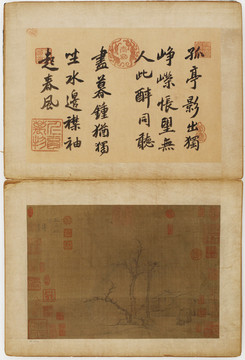 孤亭影出獨
崢嶸悵望無
人此醉同聽
盡暮鍾猶獨
坐水邊襟袖
起春風